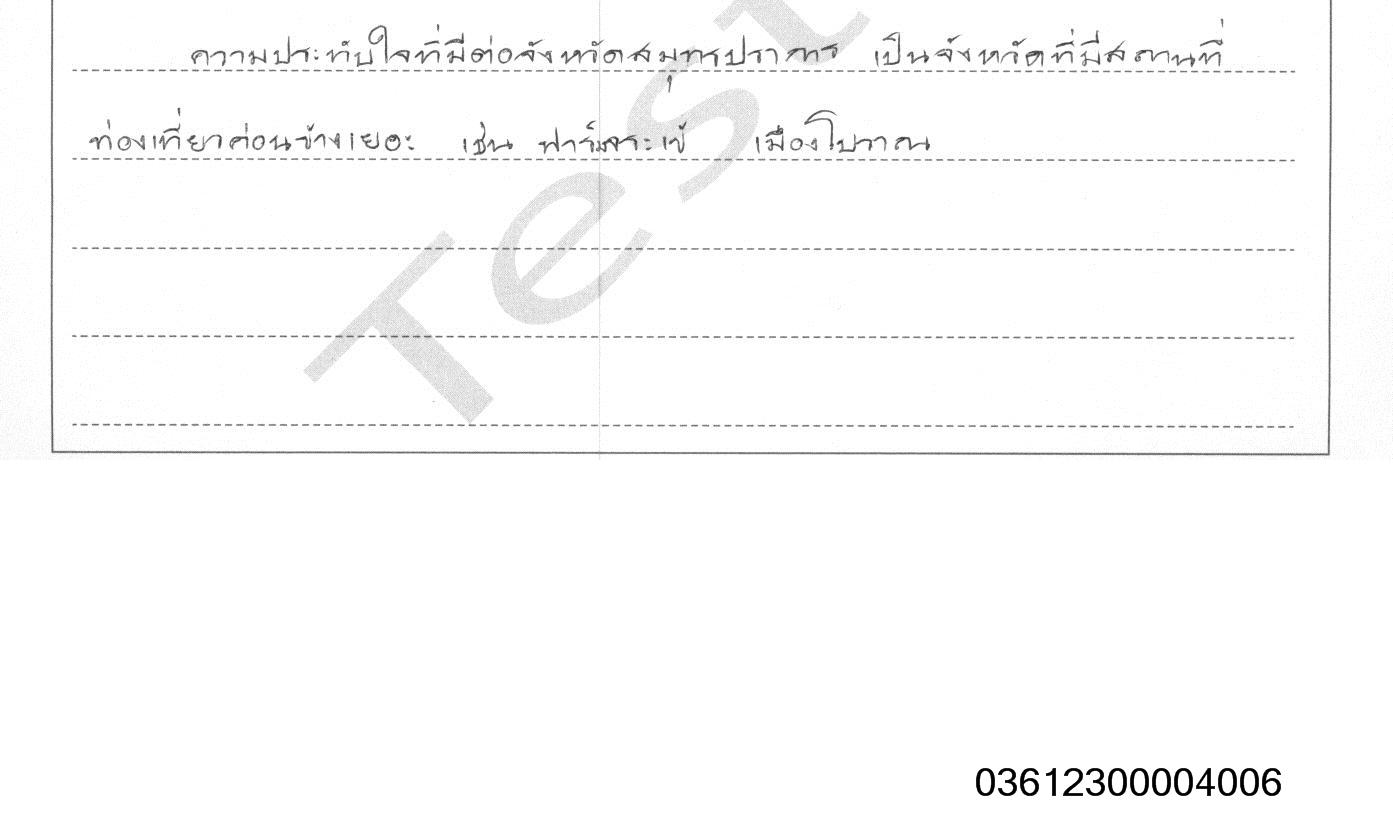 ความประทับใจที่มีต่อจังหวัดสมุทรปราการ เป็นจังหวัดที่มีสถานที่
ท่องเที่ยวค่อนข้างเยอะ เช่น ฟาร์มจระเข้ เมืองโบราณ
Test
03612300004006